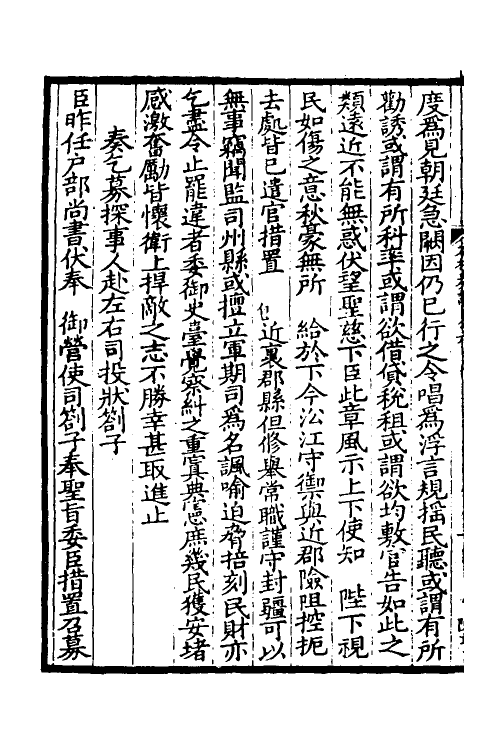 度爲見朝廷急闕因仍已行之令唱爲浮言規揺民聽或謂有所
勸誘或謂有所科率或謂欲借貸稅租或謂欲均敷官告如此之
類遠近不能無惑伏望聖慈下臣此章風示上下使知 陛下視
民如傷之意秋豪無所 給於下今㳂江守禦與近郡險阻控扼
去處皆已遣官措置 近裏郡縣但修舉常職謹守封疆可以
無事竊聞監司州縣或擅立軍期司爲名諷喻迫脅掊刻民財亦
乞盡令止罷違者委御史臺覺察糾之重寘典憲庶幾民獲安堵
感激奮勵皆懷衛上捍敵之志不勝幸甚取進止
奏乞募探事人赴左右司投狀劄子
臣昨任户部尚書伏奉 御營使司劄子奉聖旨委臣措置召募